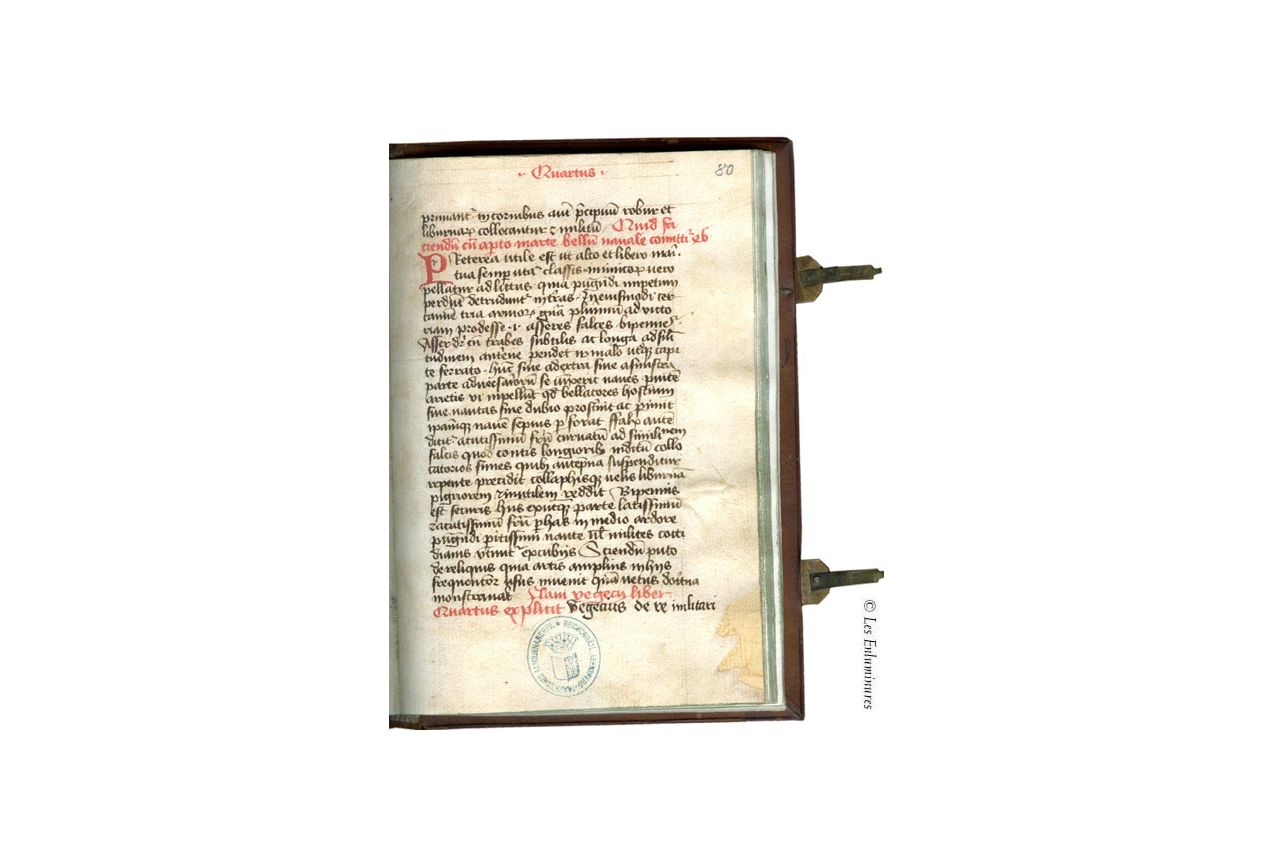 · Quartus ·
80
primant᷑ in cornibus aūt p̄cipuū robur et
liburnaꝝ collocantur ⁊ militū Quid fa
ciendū cū ap̱to marte bellū nauale comittit᷑
PReterea utile est ut alto et libero mari
tua semp̱ utat᷑ classis · inimicoꝝ uero
pellatur ad littus · quia pugn̄di impetum
perdūt detrudunt᷑ in t̄ras · In eiusmodi cer
tamīe tria armoꝝ gn̄a plurimū ad uicto
riam prodesse · i · asseres falces bipennes ·
Asser dr̄ cū trabes subtilis ac longa ad sili
tudinem antēne pendet in malo utq̨ capi
te ferrato · hūc siue a dextra siue a sinistra
parte adūsarioꝝ se iūxerit naues · p uice
arietis vi inpellūt qd̄ bellatores hostium
siue nautas sine dubio prost̄nit ac p̱imit
ip̄amq̨ nauē sepius p̱forat ffalx autē
dicit᷑ acutissimū ferrū curuatū ad simili
nem
falcis quod contis longioribꝰ inditū collo
catorios funes quibꝰ antēpna suspenditur
repente precidit collapsisq̨ uelis liburnā
pigriorem ⁊ inutilem reddit Bipennis
est securis hn̄s ex utq̨ parte latissimū
⁊ acutissimū ferrū p̱ has in medio ardore
pugn̄di p̱itissimi naute ul̄ milites
excubijs Sciendū puto
de reliquis quia artis amplius in hijs
frequentior usus inuenit quā uetus doct̄na
monstrauat Flaui vegecij liber
Quartus explicit Vegecius de re militari
REICHSGRÄFL
© Les Enluminures